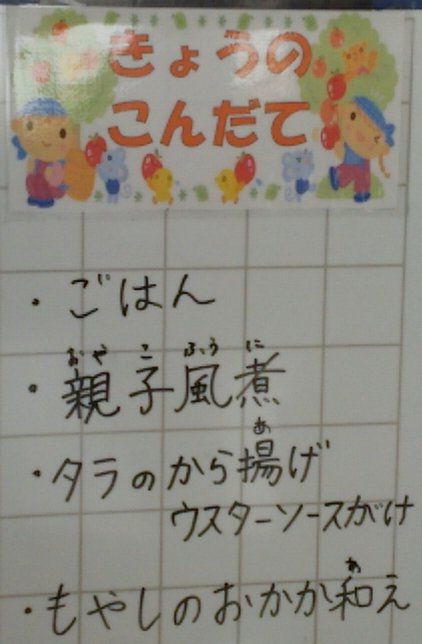 きょうの
こんだて
・ごはん
おやこふうに
・親子風煮
あ
・タラのから揚げ
ウスターソースがけ
あ
・もやしのおかか和え